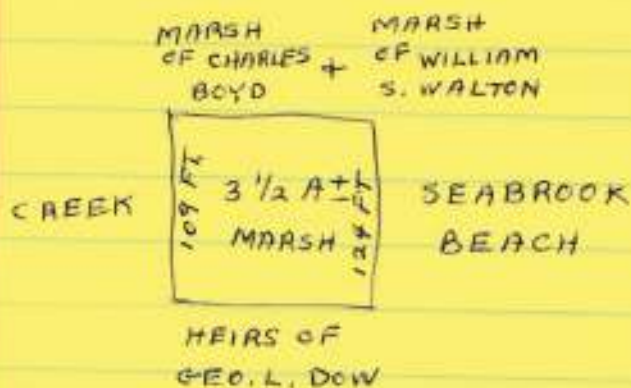 MARSH
OF CHARLES
BOYD
+
MARSH
OF WILLIAM
S. WALTON
CREEK
109 FT
3 1/2 A±
MARSH
124 FT
SEABROOK
BEACH
HEIRS OF
GEO. L. DOW